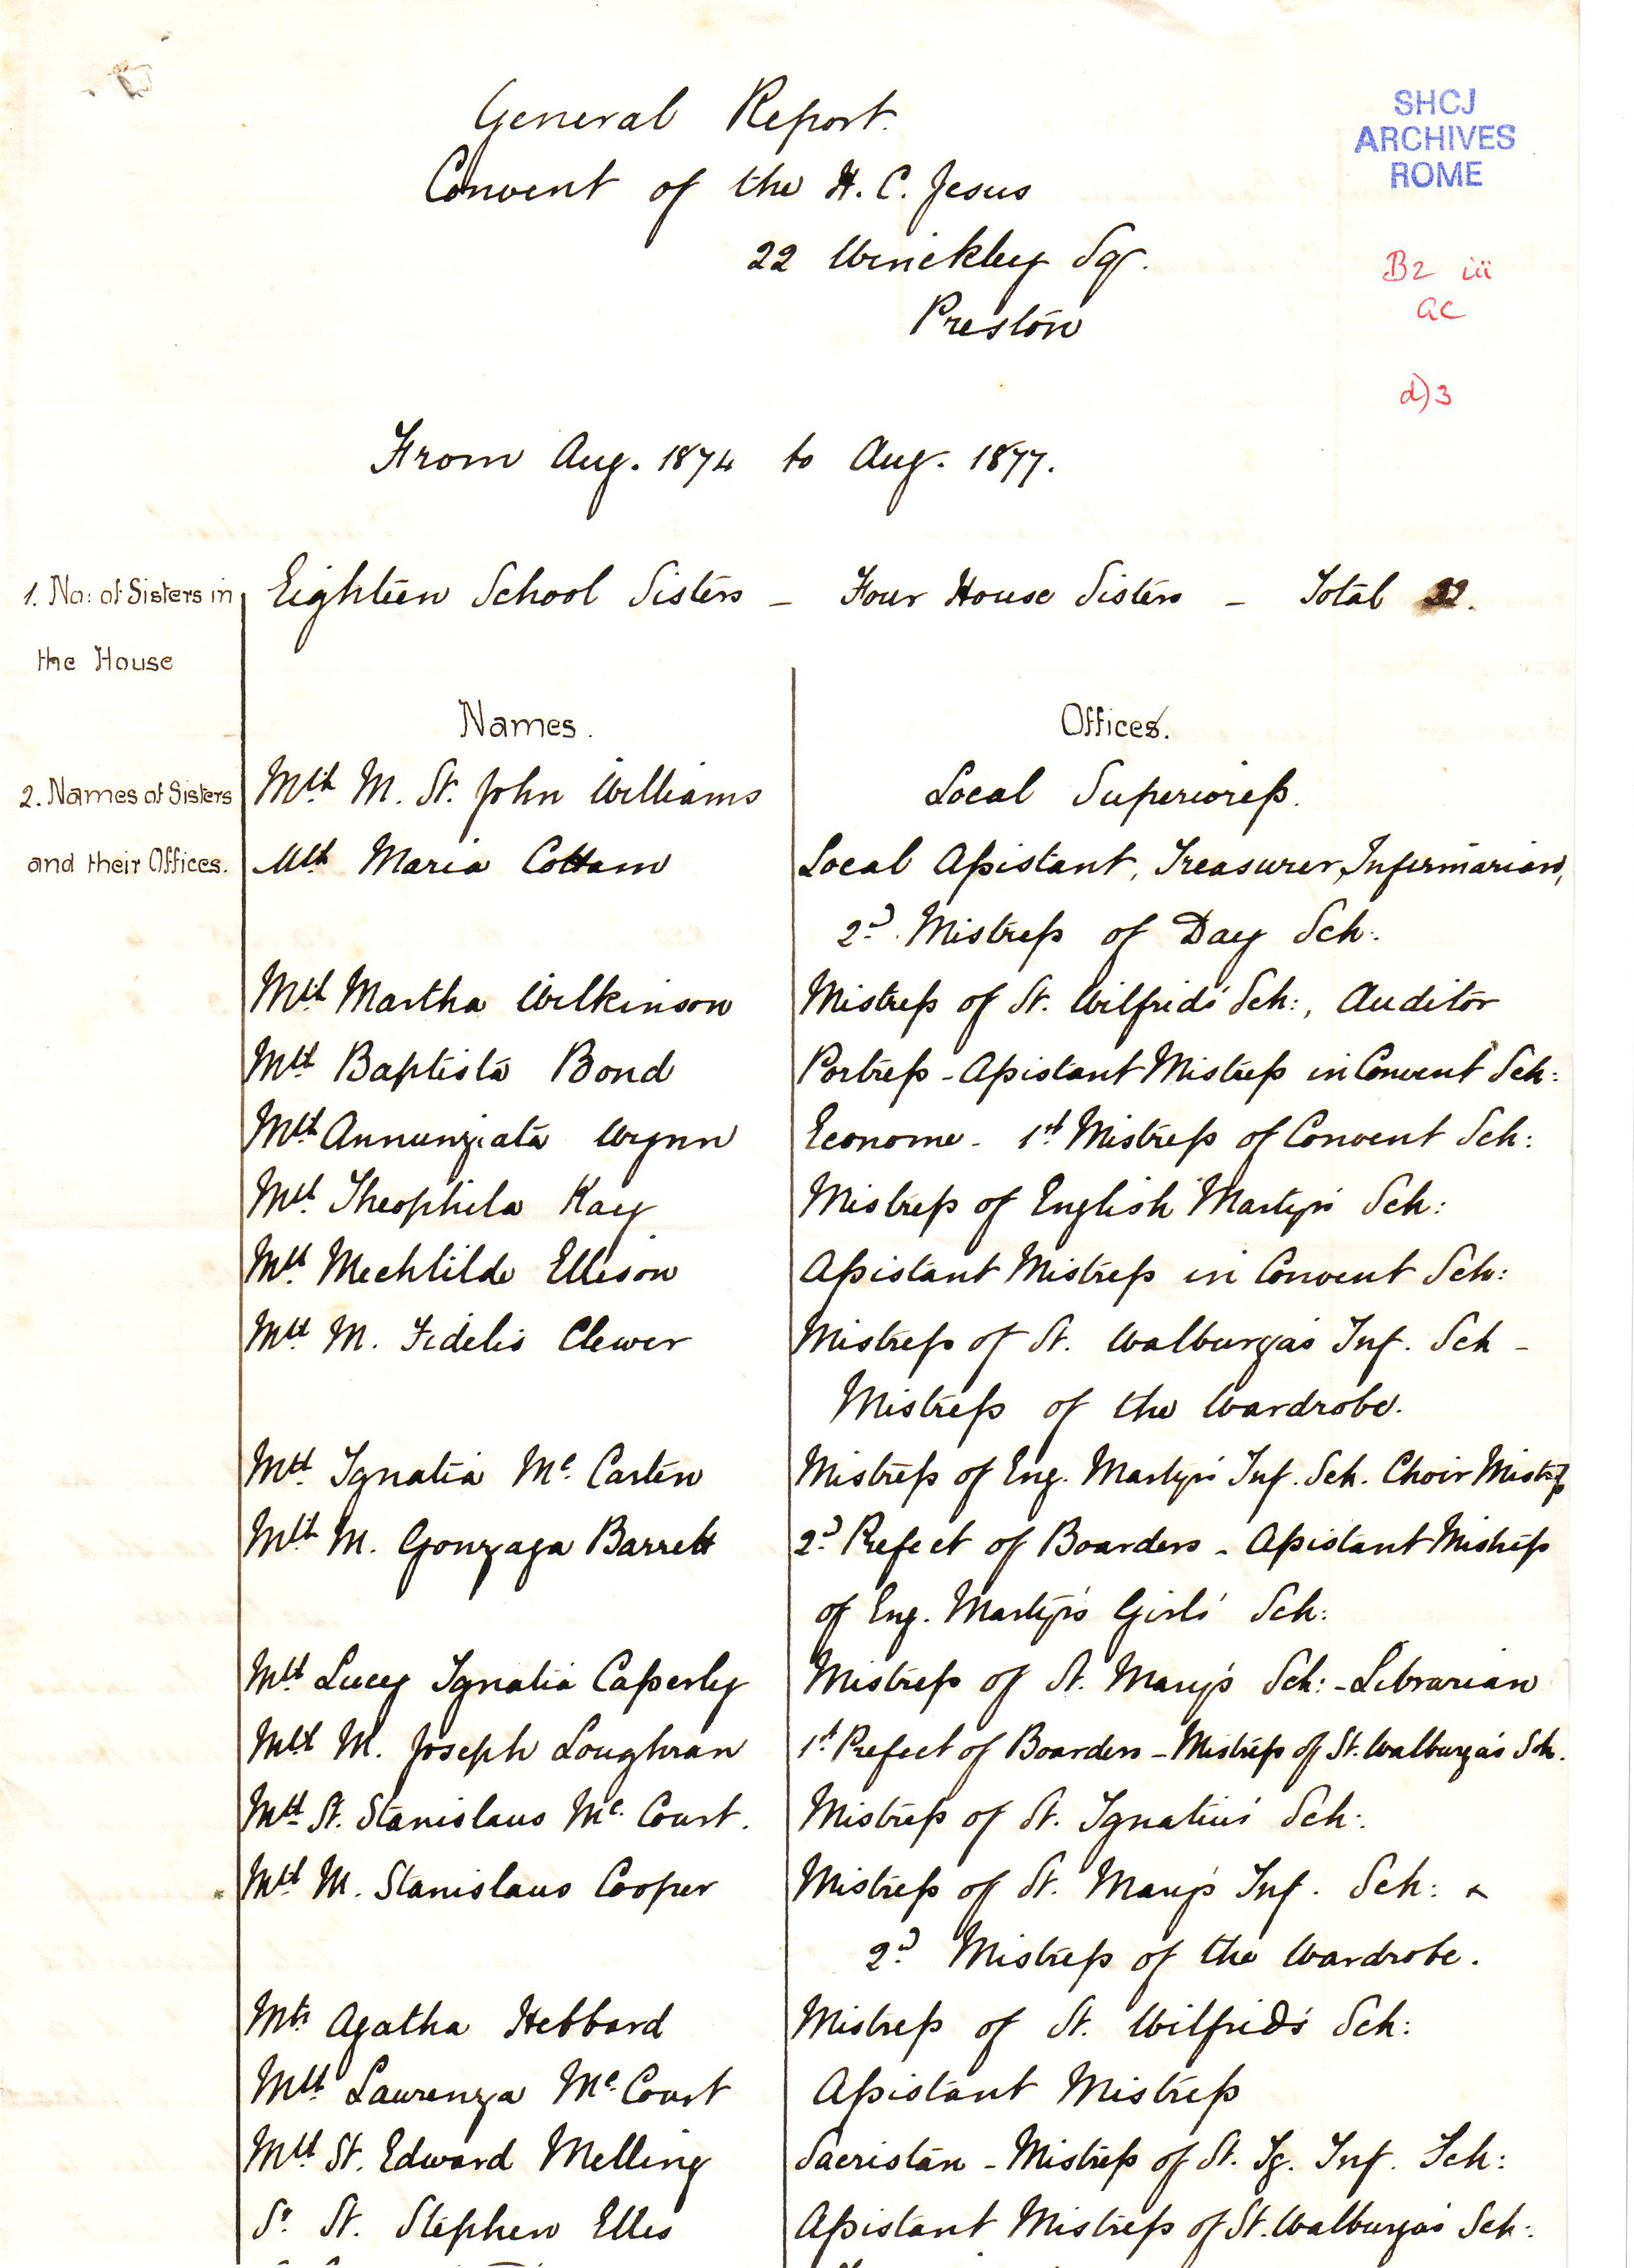 General Report.
SHCJ
ARCHIVES
ROME
Convent of the H. C. Jesus
22 Winckley Sqr.
B2 iii
ac
Preston
d)3
From Aug. 1874 to Aug. 1877.
1. No: of Sisters in the House
Eighteen School Sisters – Four House Sisters – Total 22.
Names. Offices.
2. Names of Sisters and their Offices.
Mth M. St. John Williams Local Superioress.
Mth Maria Cottam Local Assistant, Treasurer, Infirmarian,
2d. Mistress of Day Sch:.
Mth Martha Wilkinson Mistress of St. Wilfrid's Sch:, Auditor
Mth Baptista Bond Portress - Assistant Mistress in Convent Sch:
Mth Annunziata Wynn Econome - 1st Mistress of Convent Sch:
Mth Theophila Kay Mistress of English Martyrs' Sch:
Mth Mechtilde Ellison Assistant Mistress in Convent Sch:
Mth M. Fidelis Clewer Mistress of St. Walburga's Inf. Sch –
Mistress of the Wardrobe.
Mth Ignatia Mc. Carten Mistress of Eng. Martyrs' Inf. Sch. Choir Mistress
Mth M. Gonzaga Barrett 2d. Prefect of Boarders - Assistant Mistress
of Eng. Martyrs Girls' Sch:
Mth Lucy Ignatia Casserly Mistress of St. Mary's Sch: - Librarian
Mth M. Joseph Loughran 1st Prefect of Boarders – Mistress of St. Walburga's Sch.
Mth St. Stanislaus Mc. Court. Mistress of St. Ignatius' Sch:.
Mth M. Stanislaus Cooper Mistress of St. Mary's Inf. Sch: &
2d. Mistress of the Wardrobe.
Mth Agatha Hebbard Mistress of St. Wilfrid's Sch:
Mth Laurenza Mc. Court Assistant Mistress
Mth St. Edward Melling Sacristan – Mistress of St. Ig. Inf. Sch:
Sr. St. Stephen Elles Assistant Mistress of St. Walburga's Sch:.